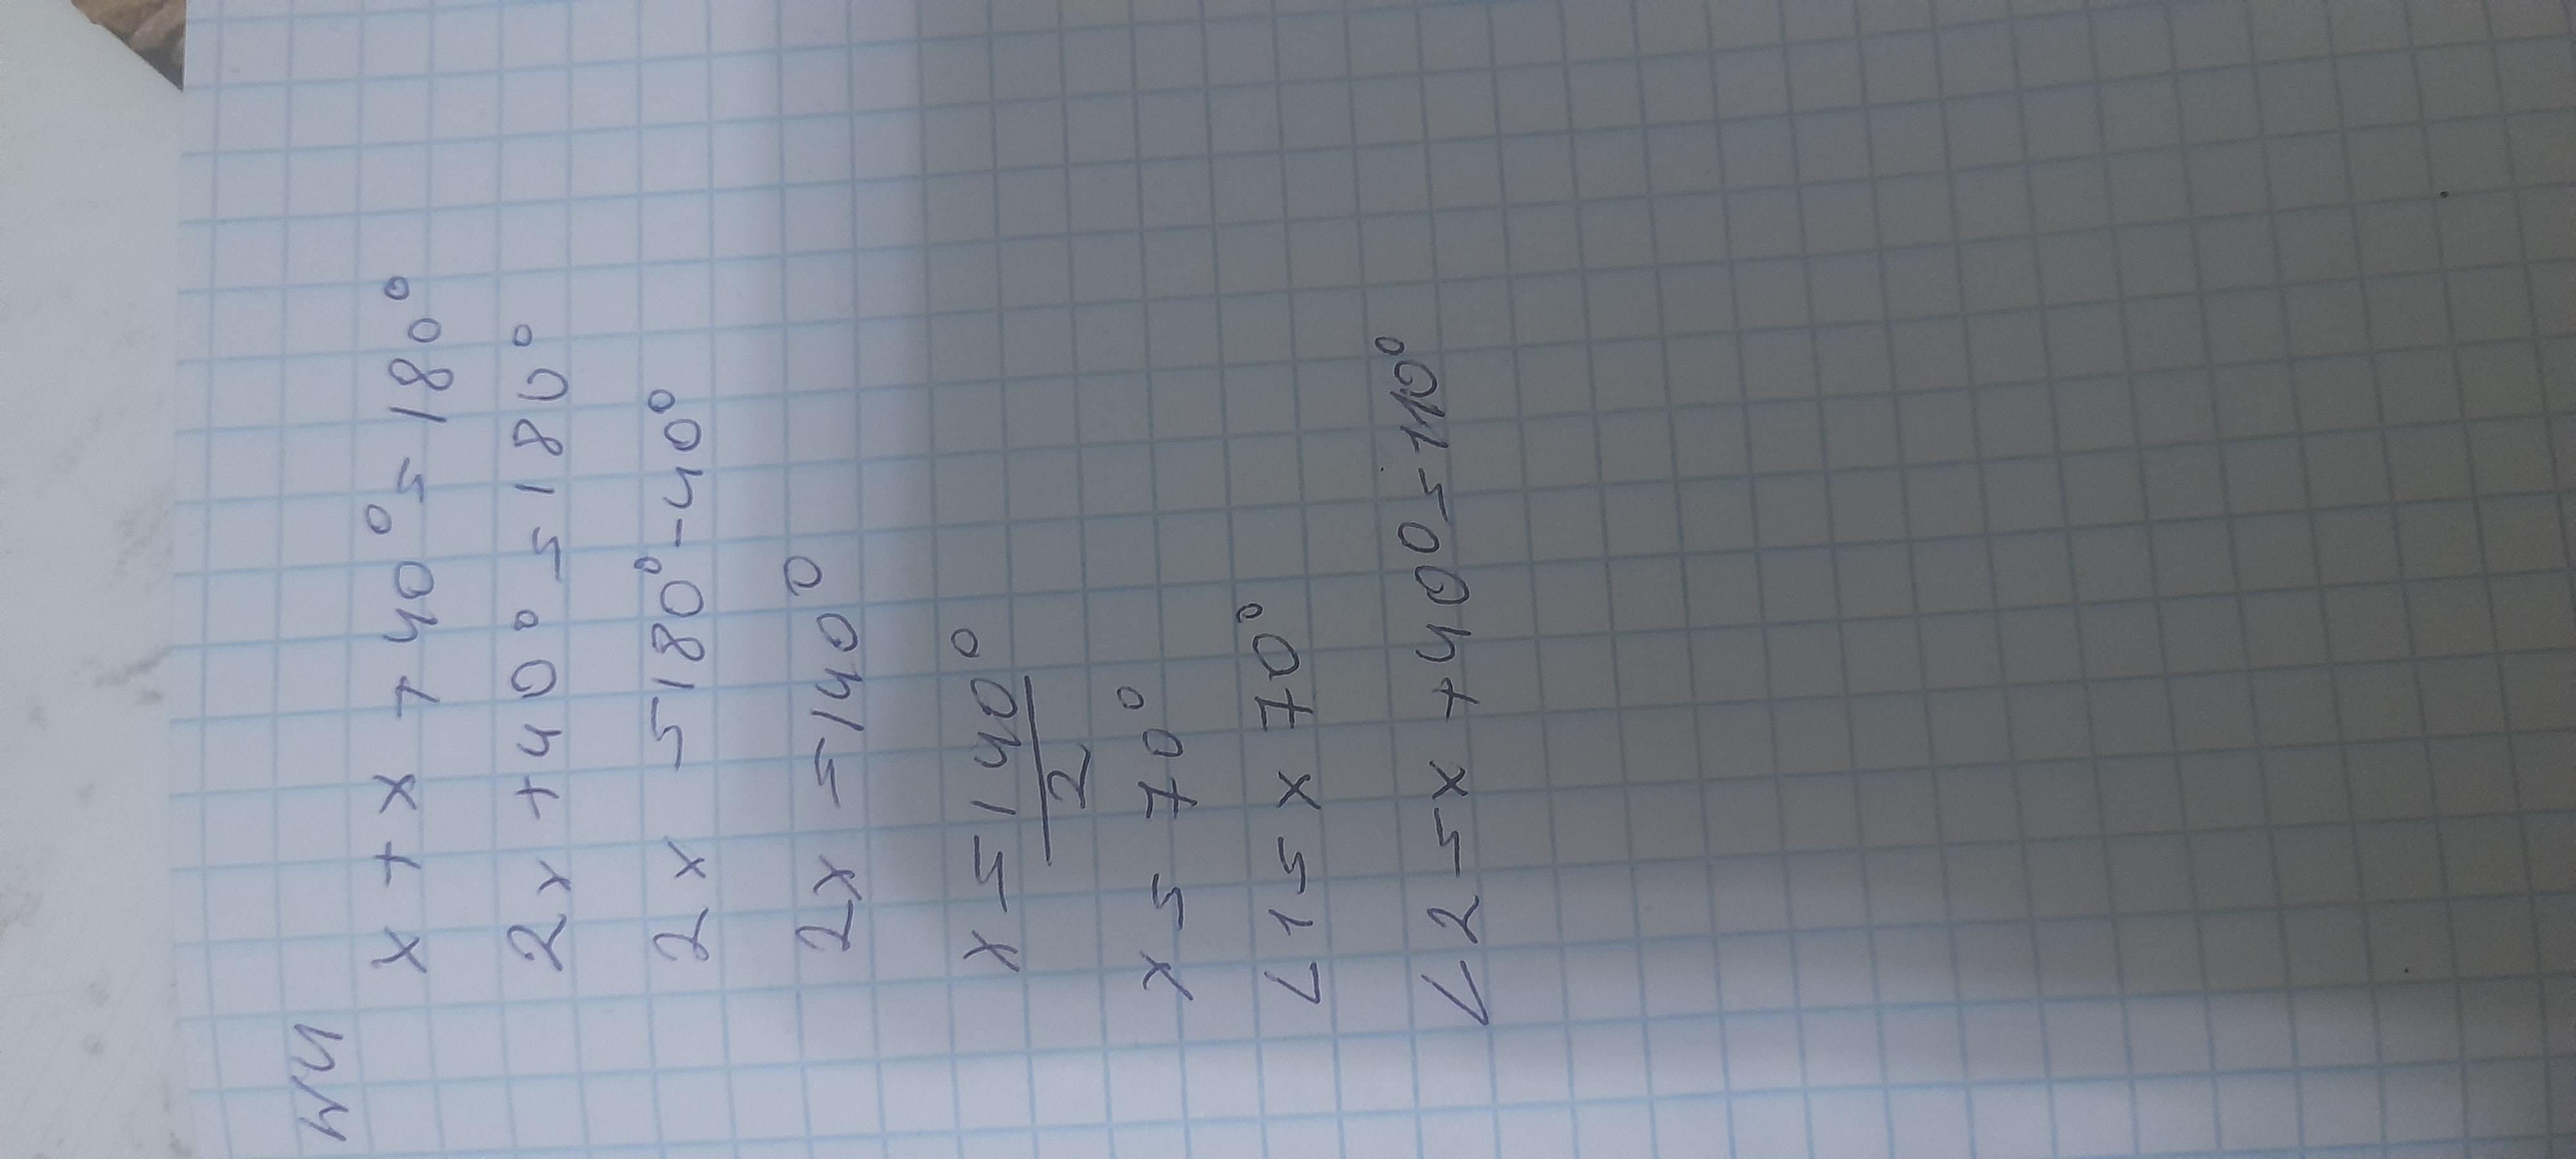 N4
x + x + 40° = 180°
2x + 40° = 180°
2x = 180° - 40°
2x = 140°
x = 140°
2
x = 70°
∠1 = x 70°
∠2 = x + 40° = 110°